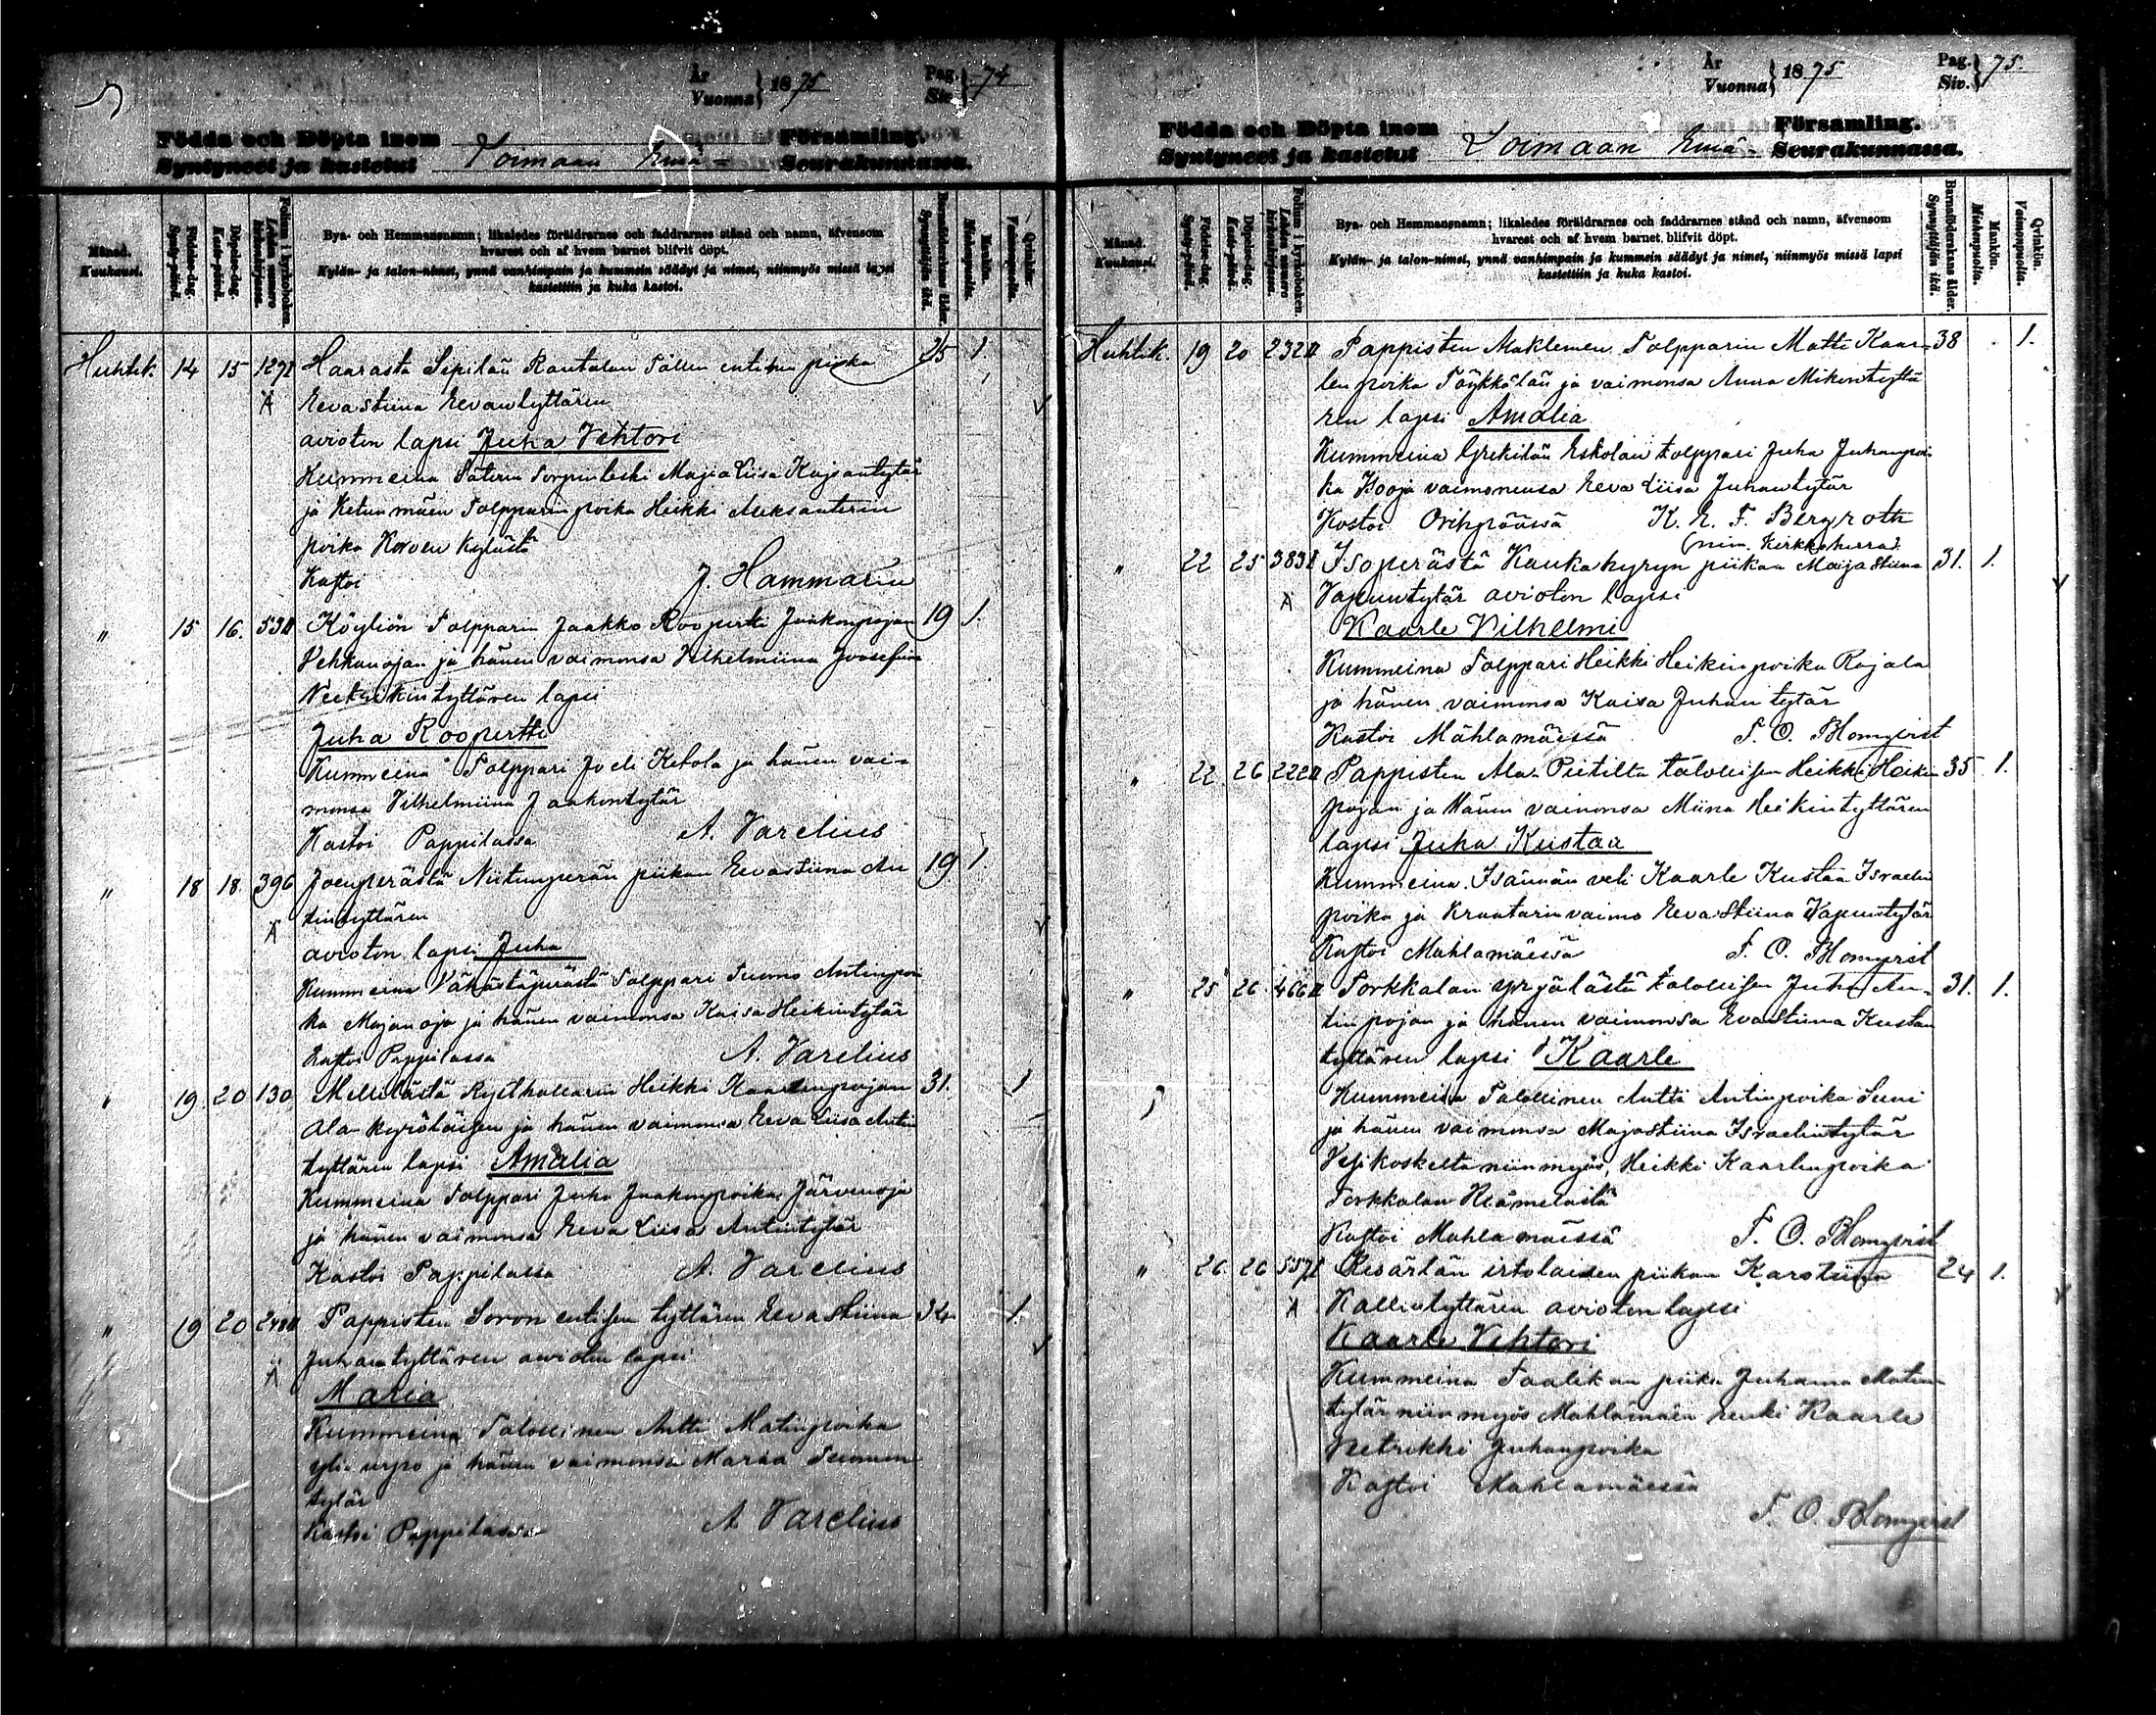 År
Vuonna } 1875
Pag.
Siv. } 74
Födda och Döpta inom
Syntyneet ja kastetut
Loimaan Emä-
Församling.
Seurakunnassa.
Månad.
Kuukausi.
Födelse-dag.
Synty-päivä.
Döpelse-dag.
Kaste-päivä.
Folium i kyrkoboken.
Lehden numero kirkonkirjassa.
Bya- och Hemmansnamn; likaledes föräldrarnes och faddrarnes stånd och namn, äfvensom
hvarest och af hvem barnet blifvit döpt.
Kylän- ja talon-nimet, ynnä vanhimpain ja kummein säädyt ja nimet, niinmyös missä lapsi
kastettiin ja kuka kastoi.
Barnaföderskans ålder.
Synnyttäjän ikä.
Mankön.
Miehenpuolia.
Qvinkön.
Vaimonpuolia.
Huhtik. 14 15 Haarasta Sepilän Rautalan Tällin entisen piika 25 1.
Ä Eevastiina Eevantyttären
avioton lapsi Juha Vihtori
Kummeina Maja Liisa Kajsantytär
ja Ketunmäen Tolpparin poika Heikki Aleksanterin
poika Korven kylästä
Kastoi J. Hammarin
" 15 16. 53II Köyliön Tolpparin Jaakko Roopertti Jaakonpojan 19 1.
Vehkanojan ja hänen vaimonsa Vilhelmiina Joosefiina
lapsi
Juha Roopertti
Kummeina Tolppari Joeli Ketola ja hänen vai-
monsa Vilhelmiina Jaakontytär
Kastoi Pappilassa A. Varelius
" 18 18. 396 Joenperästä Niitunperän piikan Eevastiina An 19 1
Ä tintyttären
avioton lapsi Juha
Kummeina Vähästäperästä Tolppari Tuomo Antinpoi
ka Majanoja ja hänen vaimonsa Kaisa Heikintytär
Kastoi Pappilassa A. Varelius
" 19. 20 130 Mellilästä Rysthollarin Heikki Kaarlenpojan 31. 1
Ala-kyröläisen ja hänen vaimonsa Eeva Liisa Antin
tyttären lapsi Amalia
Kummeina Tolppari Juha Jaakonpoika Järvenoja
ja hänen vaimonsa Eeva Liisa Antintytär
Kastoi Pappilassa A. Varelius
" 19 20 Pappisten Soron entisen tyttären Eeva Stiina 34 1.
Ä Juhantyttären avioton lapsi
Maria
Kummeina Talollinen Antti Matinpoika
ja hänen vaimonsa Maria Tuomon
tytär
Kastoi Pappilassa A Varelius
År
Vuonna } 1875
Pag.
Siv. } 75.
Födda och Döpta inom
Syntyneet ja kastetut
Loimaan Emä-
Församling.
Seurakunnassa.
Månad.
Kuukausi.
Födelse-dag.
Synty-päivä.
Döpelse-dag.
Kaste-päivä.
Folium i kyrkoboken.
Lehden numero kirkonkirjassa.
Bya- och Hemmansnamn; likaledes föräldrarnes och faddrarnes stånd och namn, äfvensom
hvarest och af hvem barnet blifvit döpt.
Kylän- ja talon-nimet, ynnä vanhimpain ja kummein säädyt ja nimet, niinmyös missä lapsi
kastettiin ja kuka kastoi.
Barnaföderskans ålder.
Synnyttäjän ikä.
Mankön.
Miehenpuolia.
Qvinkön.
Vaimonpuolia.
Huhtik. 19 20 232II Pappisten Maklemen Tolpparin Matti Kaar- 38 1.
len poika Töykkälän ja vaimonsa Anna Mikontyttä
ren lapsi Amalia
Kummeina Eskolan tolppari Juha Juhanpoi
ka Isooja vaimoneusa Eeva Liisa Juhantytär
Kastoi Oripäässä K. E. F. Bergroth
(nim. Kirkkoherra)
" 22 25 383I Isoperästä Kaukahyryn piikan Maija Stiina 31. 1.
Ä Vapuntytär avioton lapsi
Kaarle Vilhelmi
Kummeina Tolppari Heikki Heikinpoika Rajala
ja hänen vaimonsa Kaisa Juhan tytär
Kastoi Mählamäessä F. O. Blomqvist
" 22. 26 222II Pappisten Ala-Pietilta talollisen Heikki Heikin 35 1.
pojan ja Hänen vaimonsa Miina Heikintyttären
lapsi Juha Kustaa
Kummeina Isännän veli Kaarle Kustaa Israelin
poika ja Kraatarin vaimo Eeva Stiina Vapuntytär
Kastoi Mahlamäessä F. O. Blomqvist
" 25 26. 466II Torkkalan Yrjölästä talollisen Juha An- 31. 1.
tin pojan ja hänen vaimonsa Evastiina Kustan
tyttären lapsi Kaarle
Kummeina Talollinen Antti Antinpoika Suni
ja hänen vaimonsa Majastiina Israelintytär
Vesikoskelta niinmyös, Heikki Kaarlenpoika
Torkkalan
Kastoi Mahlamäessä F. O. Blomqvist
" 26. 26 557I irtolaisen piikan Karostiina 24 1.
Ä Kallentyttären avioton lapsi
Kaarle Vihtori
Kummeina piika Juhanna Matin
tytär niin myös Mahlamäen renki Kaarle
Petrikki Juhanpoika
Kastoi Mahlamäessä
F. O. Blomqvist